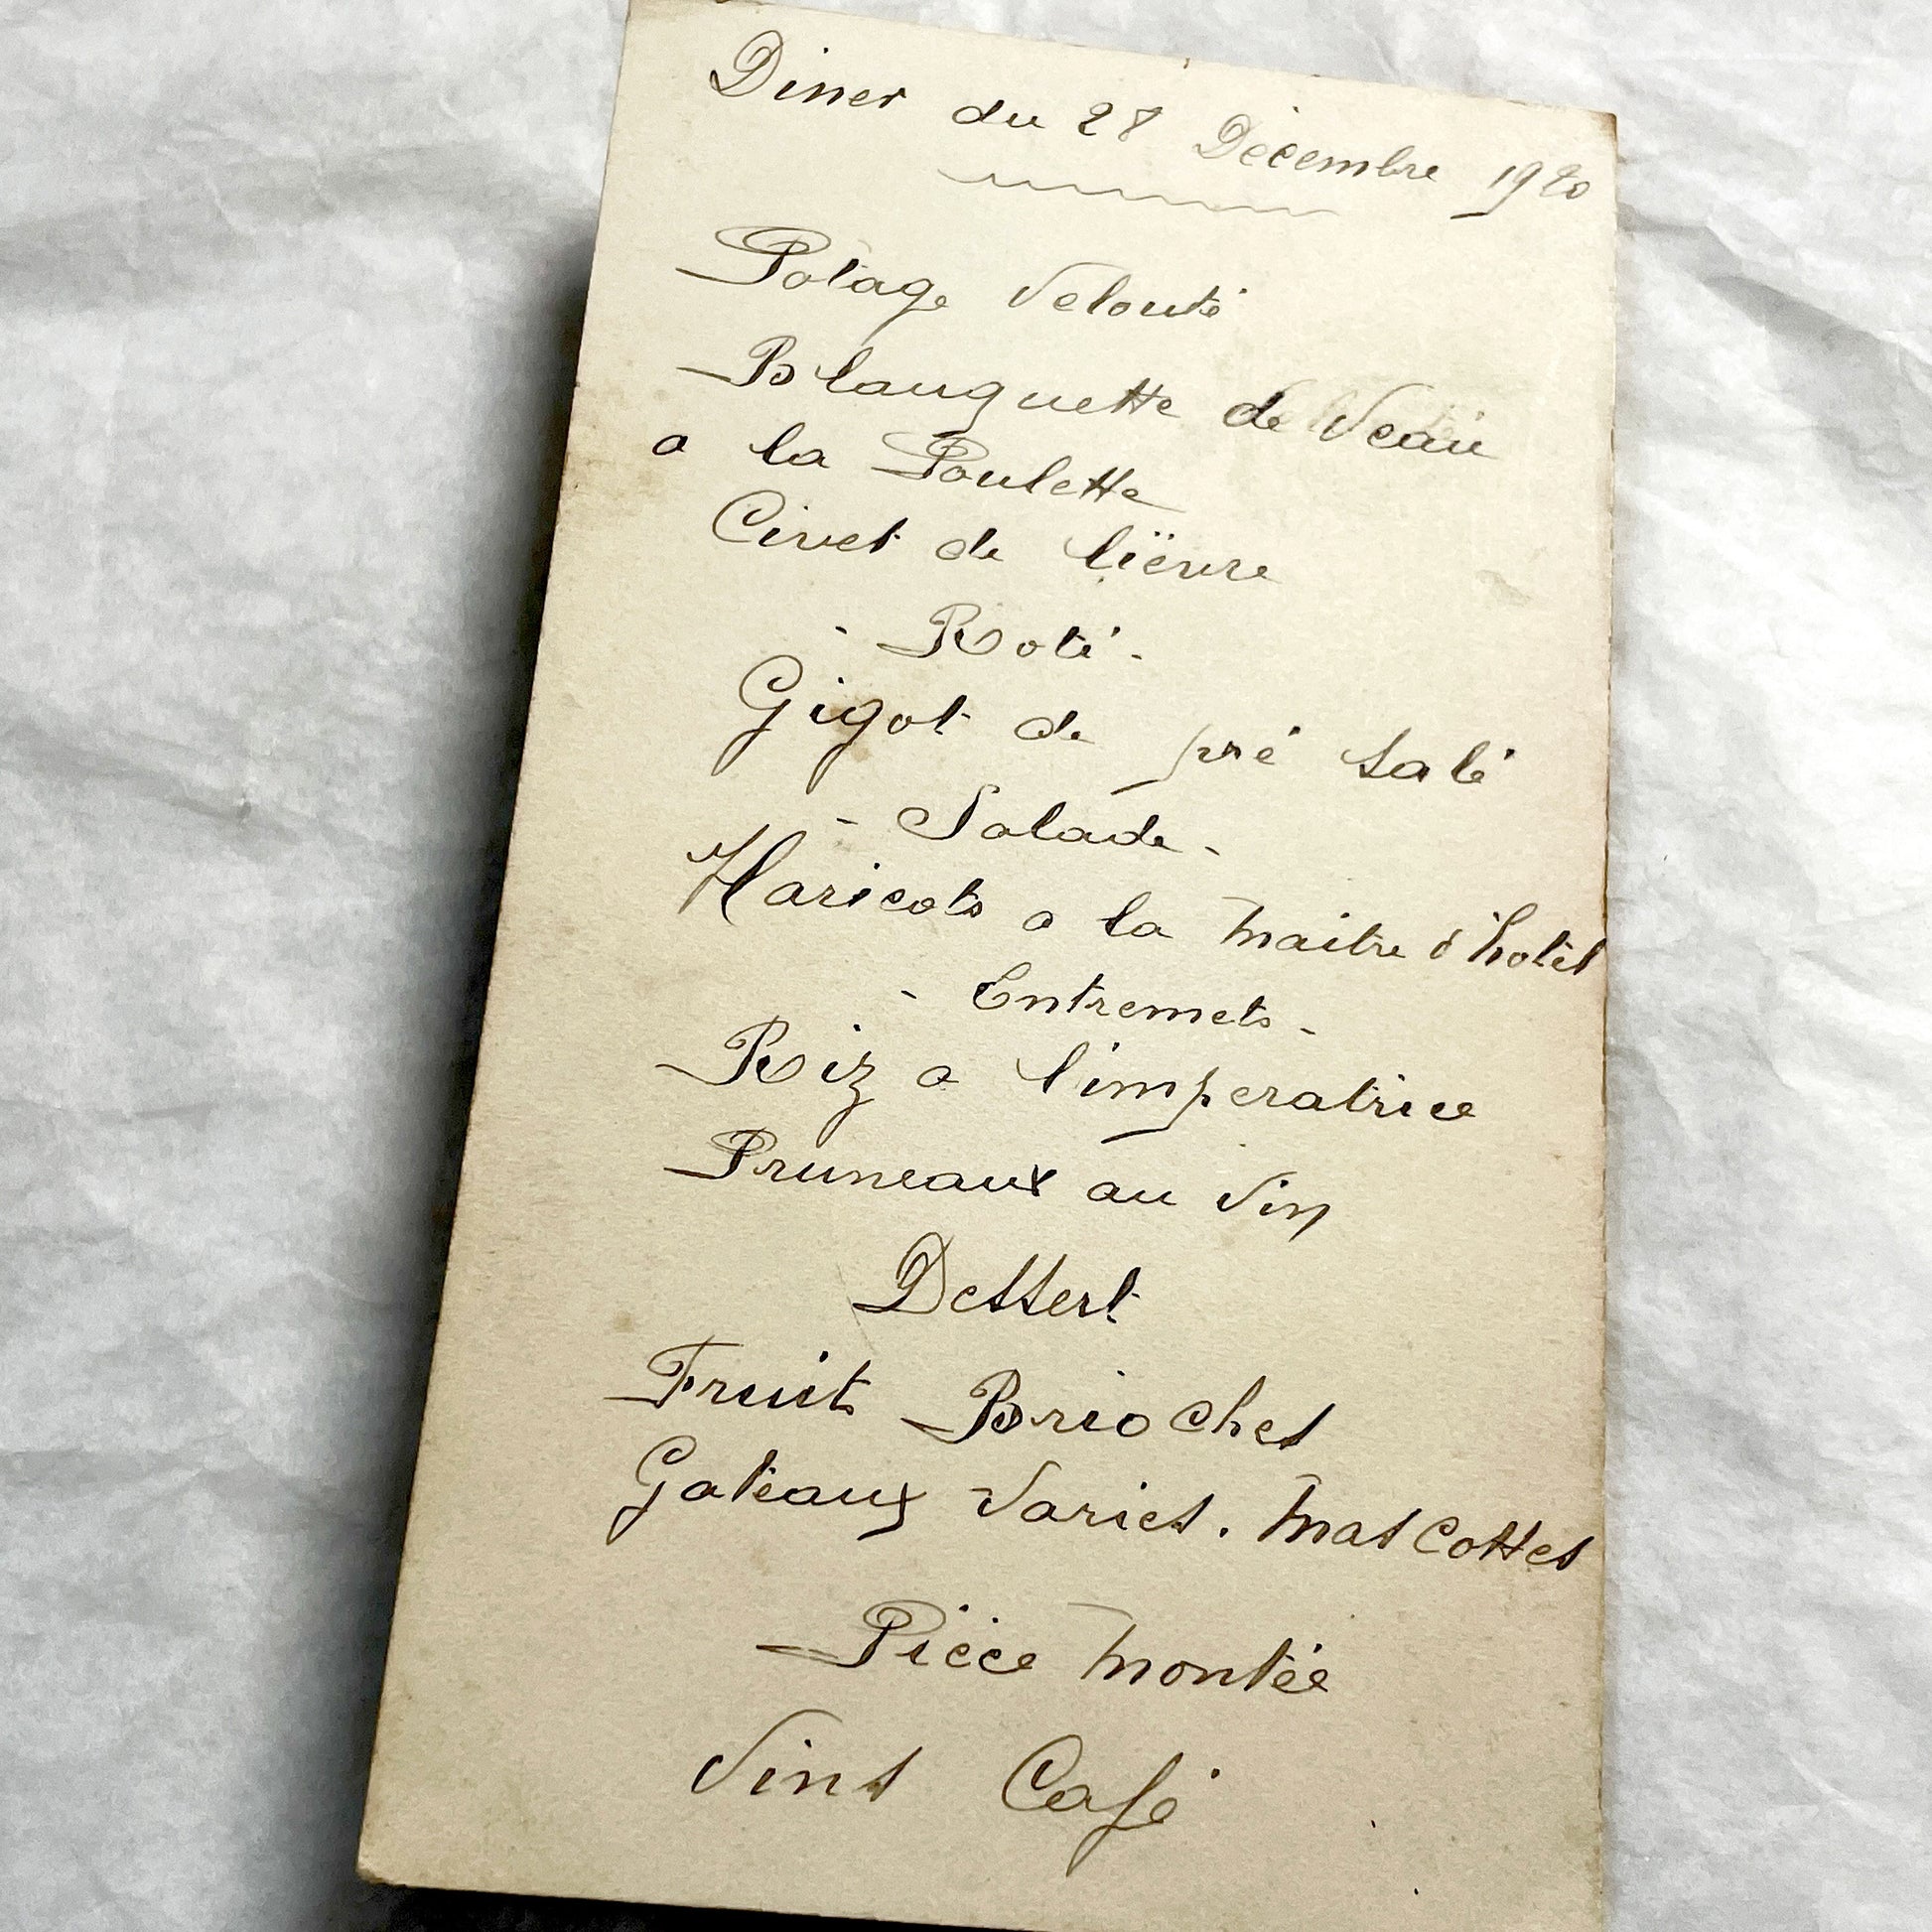 Diner du 28 Décembre 1920
Potage Velouté
Blanquette de Veau
a la Poulette
Civet de lièvre
- Roti -
Gigot de pré salé
- Salade -
Haricots a la maitre d'hotel
- Entremets -
Riz a l'imperatrice
Pruneaux au Vin
Dessert
Fruit Brioches
Gateaux Variés. Mascottes
Pièce Montée
Vins Café